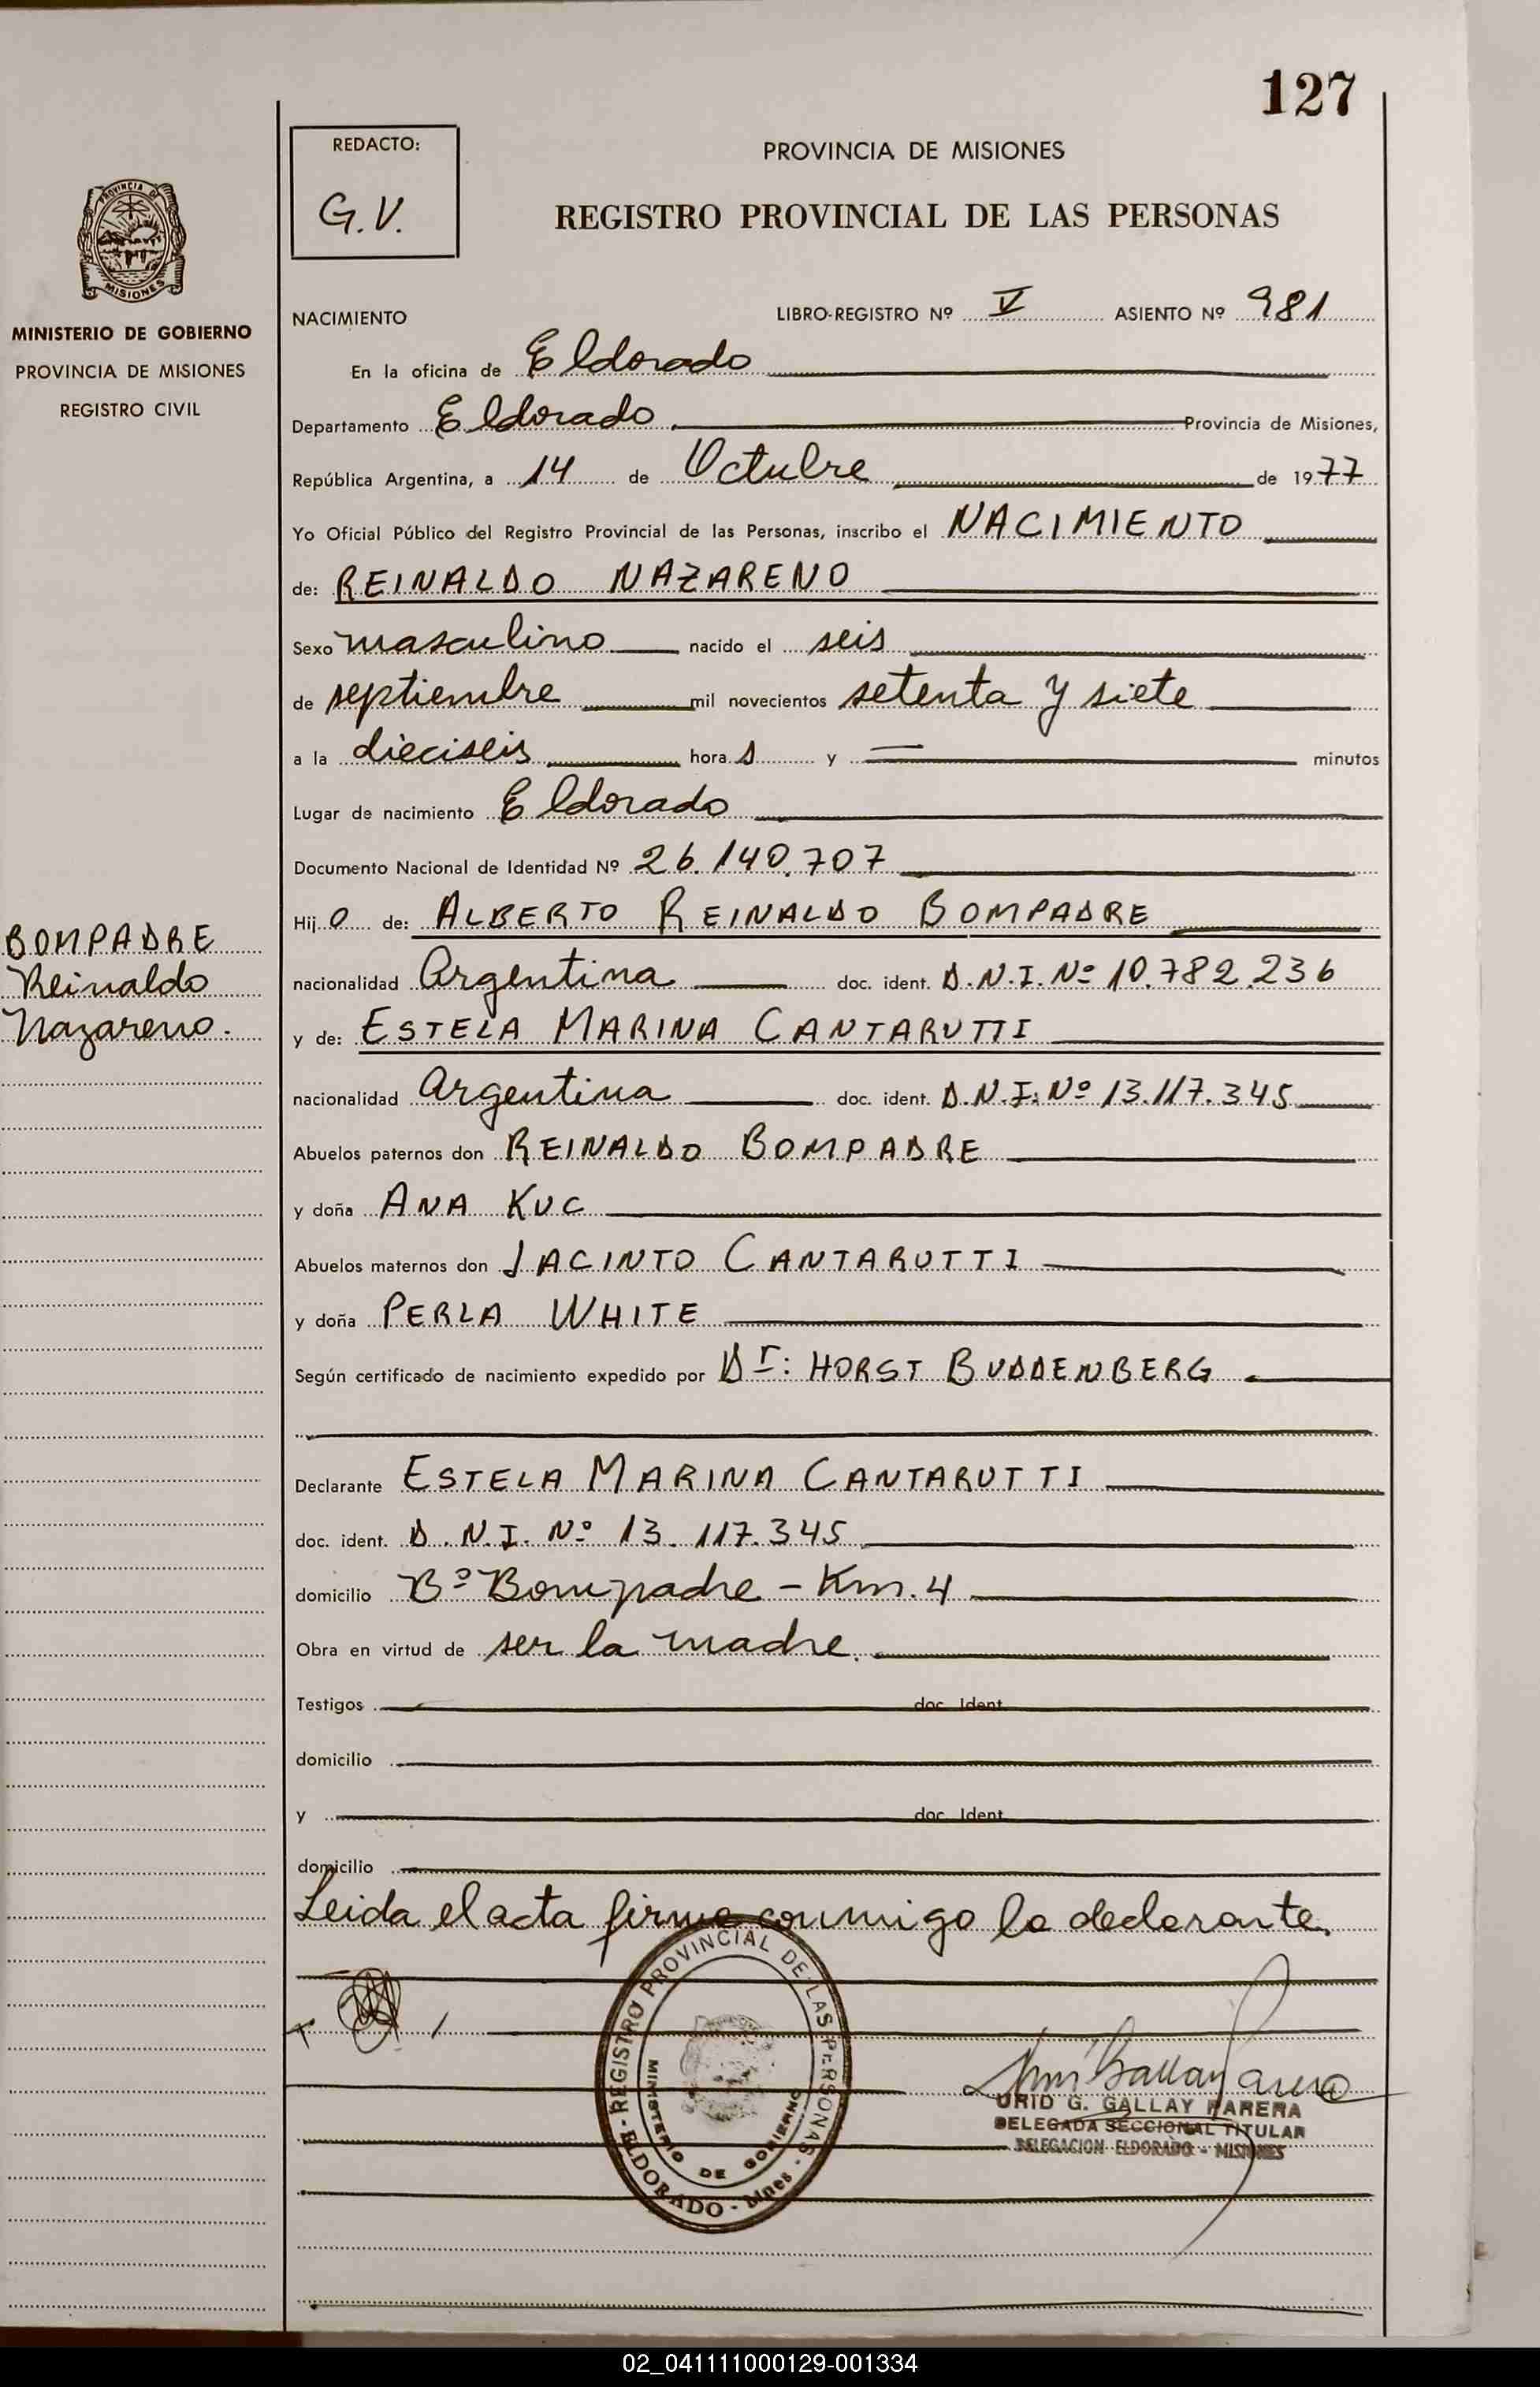 127
REDACTO:
G.V.
PROVINCIA DE MISIONES
REGISTRO PROVINCIAL DE LAS PERSONAS
PROVINCIA DE
MISIONES
MINISTERIO DE GOBIERNO
PROVINCIA DE MISIONES
REGISTRO CIVIL
NACIMIENTO LIBRO-REGISTRO Nº V ASIENTO Nº 981
En la oficina de Eldorado
Departamento Eldorado Provincia de Misiones,
República Argentina, a 14 de Octubre de 1977
Yo Oficial Público del Registro Provincial de las Personas, inscribo el NACIMIENTO
de: REINALDO NAZARENO
Sexo masculino nacido el seis
de septiembre mil novecientos setenta y siete
a la dieciseis hora s y — minutos
Lugar de nacimiento Eldorado
Documento Nacional de Identidad Nº 26.140.707
Hijo de: ALBERTO REINALDO BOMPADRE
BOMPADRE
Reinaldo
Nazareno.
nacionalidad Argentina doc. ident. D.N.I. Nº 10.782.236
y de: ESTELA MARINA CANTARUTTI
nacionalidad Argentina doc. ident. D.N.I. Nº 13.117.345
Abuelos paternos don REINALDO BOMPADRE
y doña ANA KUC
Abuelos maternos don JACINTO CANTARUTTI
y doña PERLA WHITE
Según certificado de nacimiento expedido por Dr: HORST BUDDENBERG
Declarante ESTELA MARINA CANTARUTTI
doc. ident. D.N.I. Nº 13.117.345
domicilio Bº Bompadre - Km. 4
Obra en virtud de ser la madre.
Testigos doc. Ident.
domicilio
y doc. Ident.
domicilio
Leida el acta firma conmigo la declarante.
REGISTRO PROVINCIAL DE LAS PERSONAS
MINISTERIO DE GOBIERNO
ELDORADO - Mnes -
URID G. GALLAY PARERA
DELEGADA SECCIONAL TITULAR
DELEGACION ELDORADO - MISIONES
02_041111000129-001334